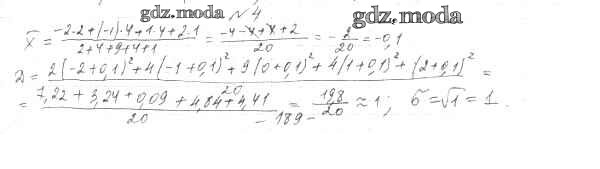 gdz.moda №4 gdz.moda
x̄ = (-2·2+(-1)·4+1·4+2·1)/(2+4+9+4+1) = (-4-4+4+2)/20 = -2/20 = -0,1
D = (2(-2+0,1)²+4(-1+0,1)²+9(0+0,1)²+4(1+0,1)²+(2+0,1)²)/20 =
= (7,22+3,24+0,09+4,84+4,41)/20 = 19,8/20 ≈ 1; σ=√1=1.
- 189 -